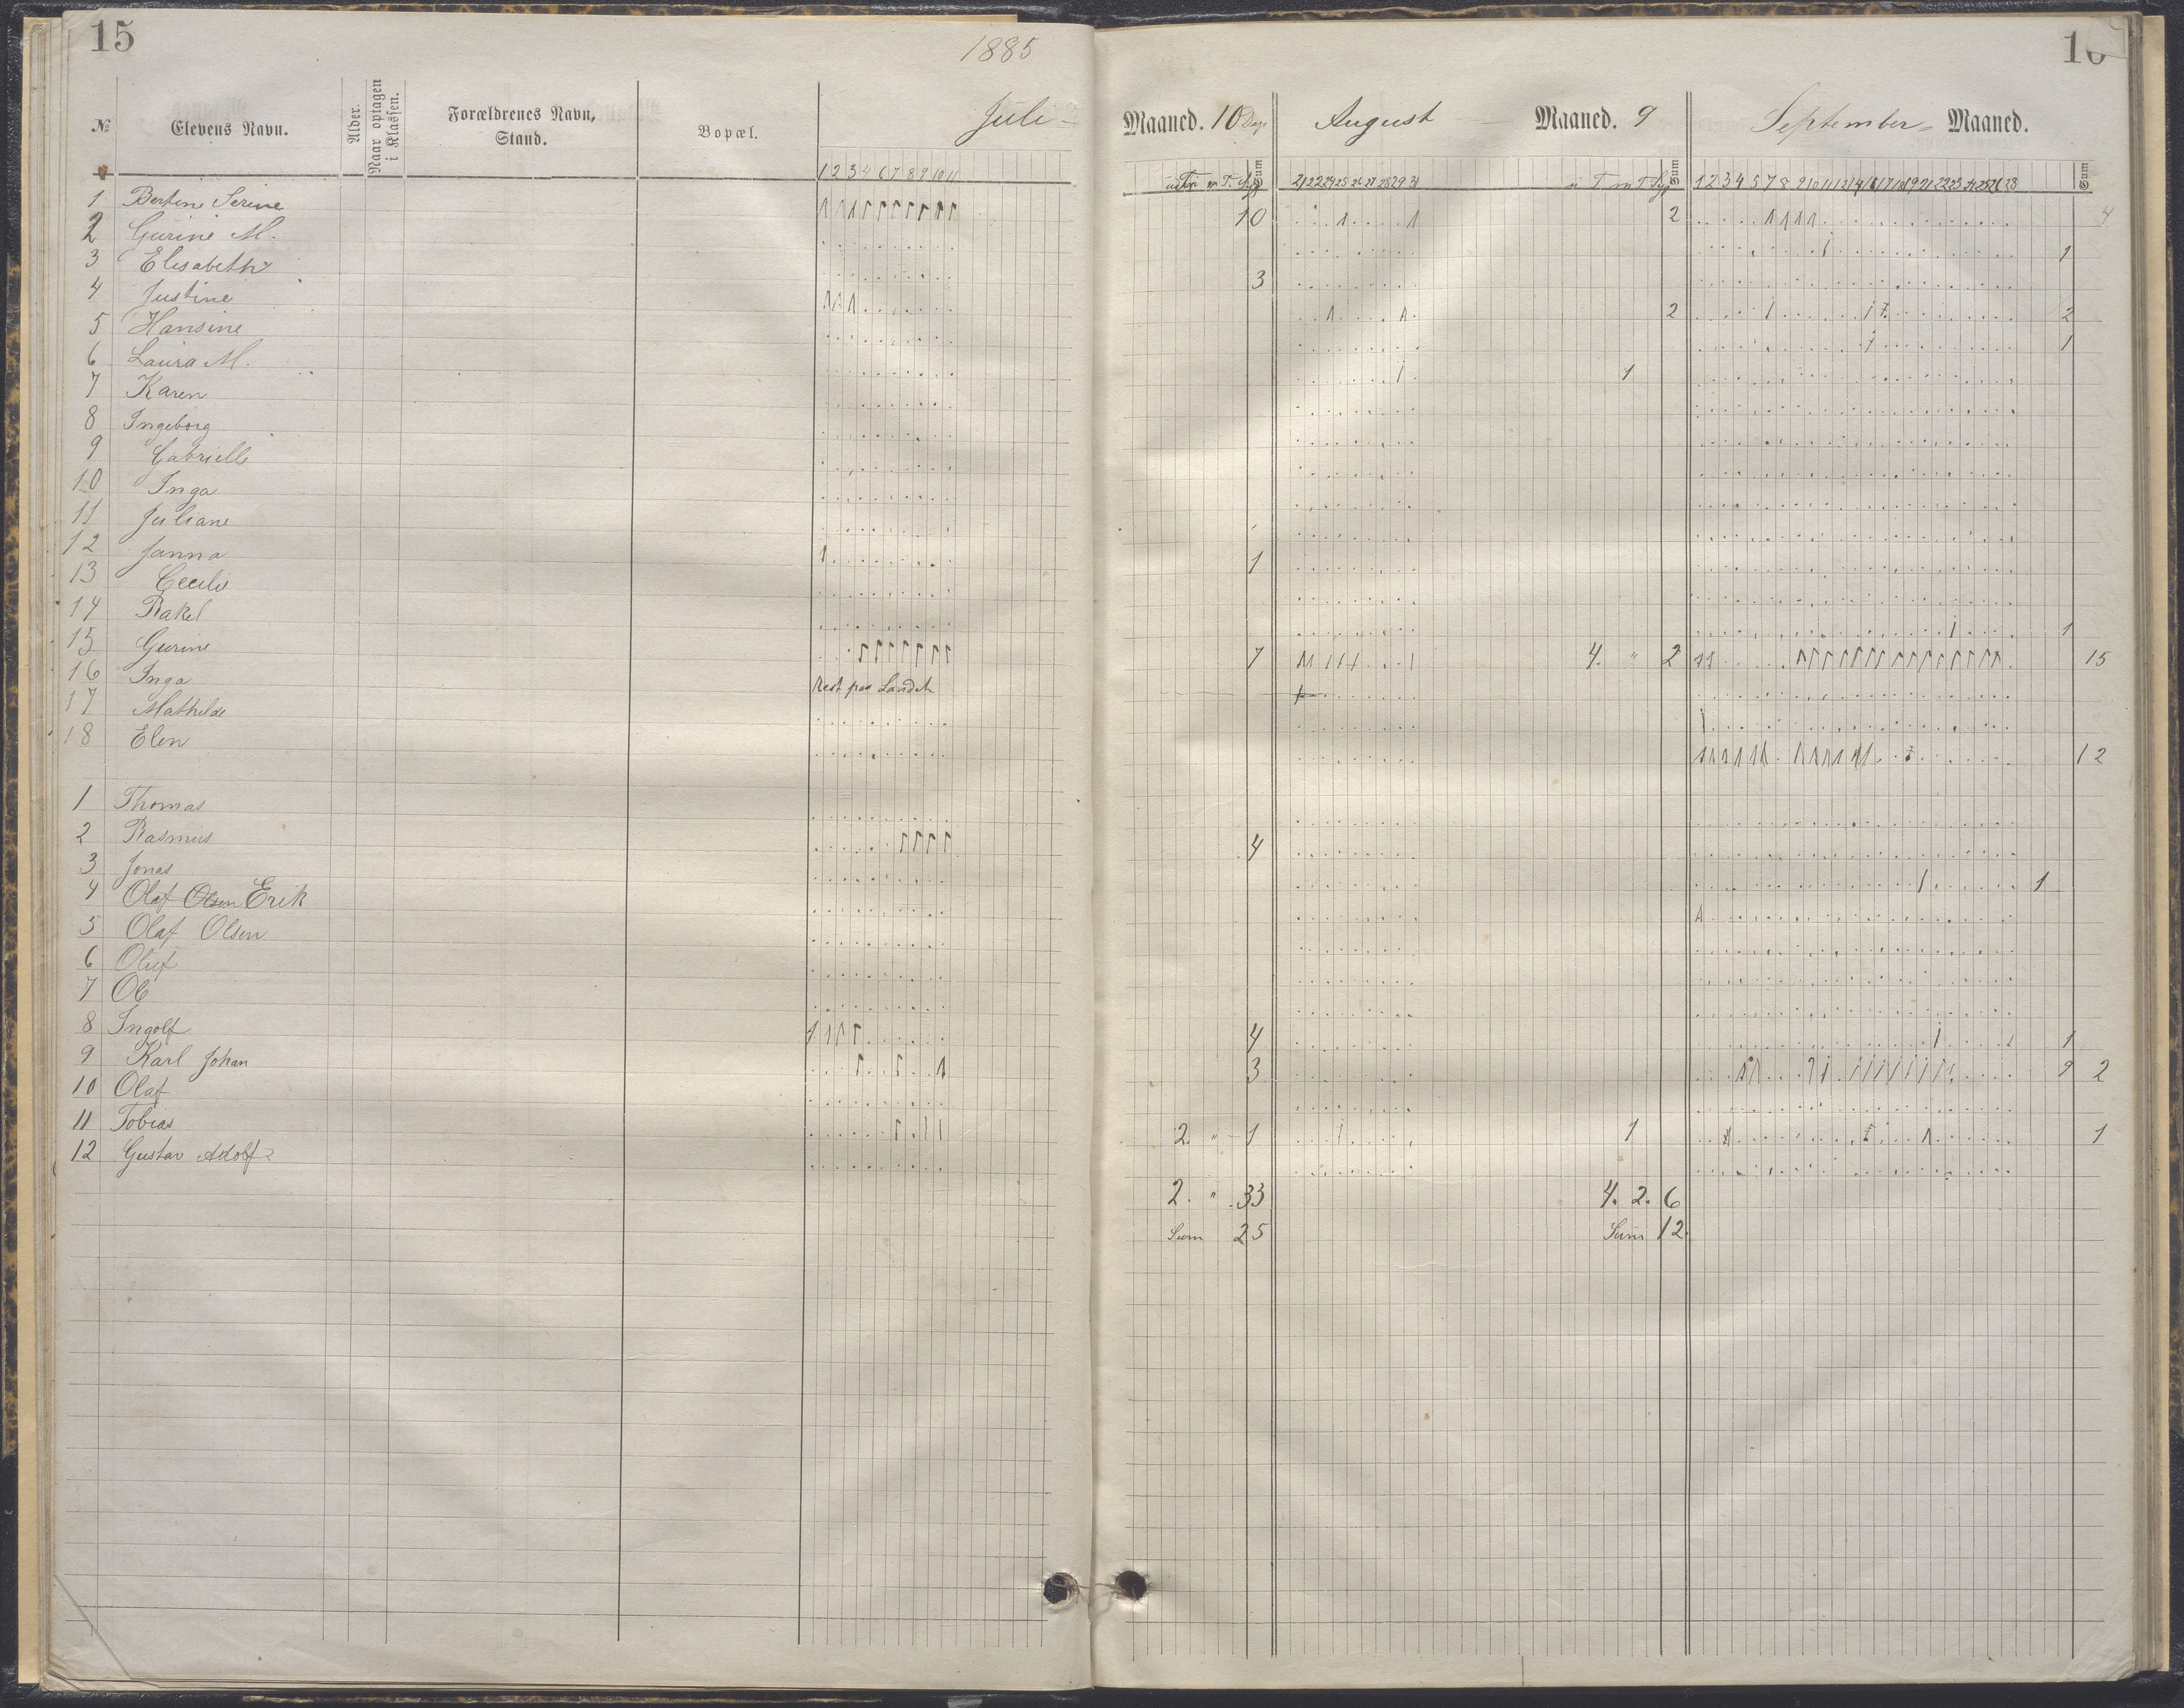 15
1885
16
№ Elevens Navn. Alder. Naar optagen i Klassen. Forældrenes Navn, Stand. Bopæl. Juli Maaned. 10 Dage August Maaned. 9 September Maaned.
1 2 3 4 6 7 8 9 10 11 Sum 21 22 24 25 26 27 28 29 31 Sum 1 2 3 4 5 7 8 9 10 11 12 14 16 17 18 19 21 22 23 24 25 26 28 Sum
1 Bertine Serine 10 2 4
2 Gurine M. 1
3 Elisabeth
4 Justine 3 2 2
5 Hansine 1
6 Laura M. 1
7 Karen
8 Ingeborg
9 Gabrielle
10 Inga
11 Juliane
12 Janna 1
13 Cecilie
14 Rakel 1
15 Gurine 7 4. " 2 15
16 Inga Rest paa Landet
17 Mathilde
18 Elen 12
1 Thomas
2 Rasmus 4
3 Jonas 1
4 Olaf Olsen Erik
5 Olaf Olsen
6 Oluf
7 Ole
8 Ingolf 4 1
9 Karl Johan 3 9 2
10 Olaf
11 Tobias 2. " 1 1 1
12 Gustav Adolf
2. " 33 4. 2. 6
Sum 25 Sum 12.